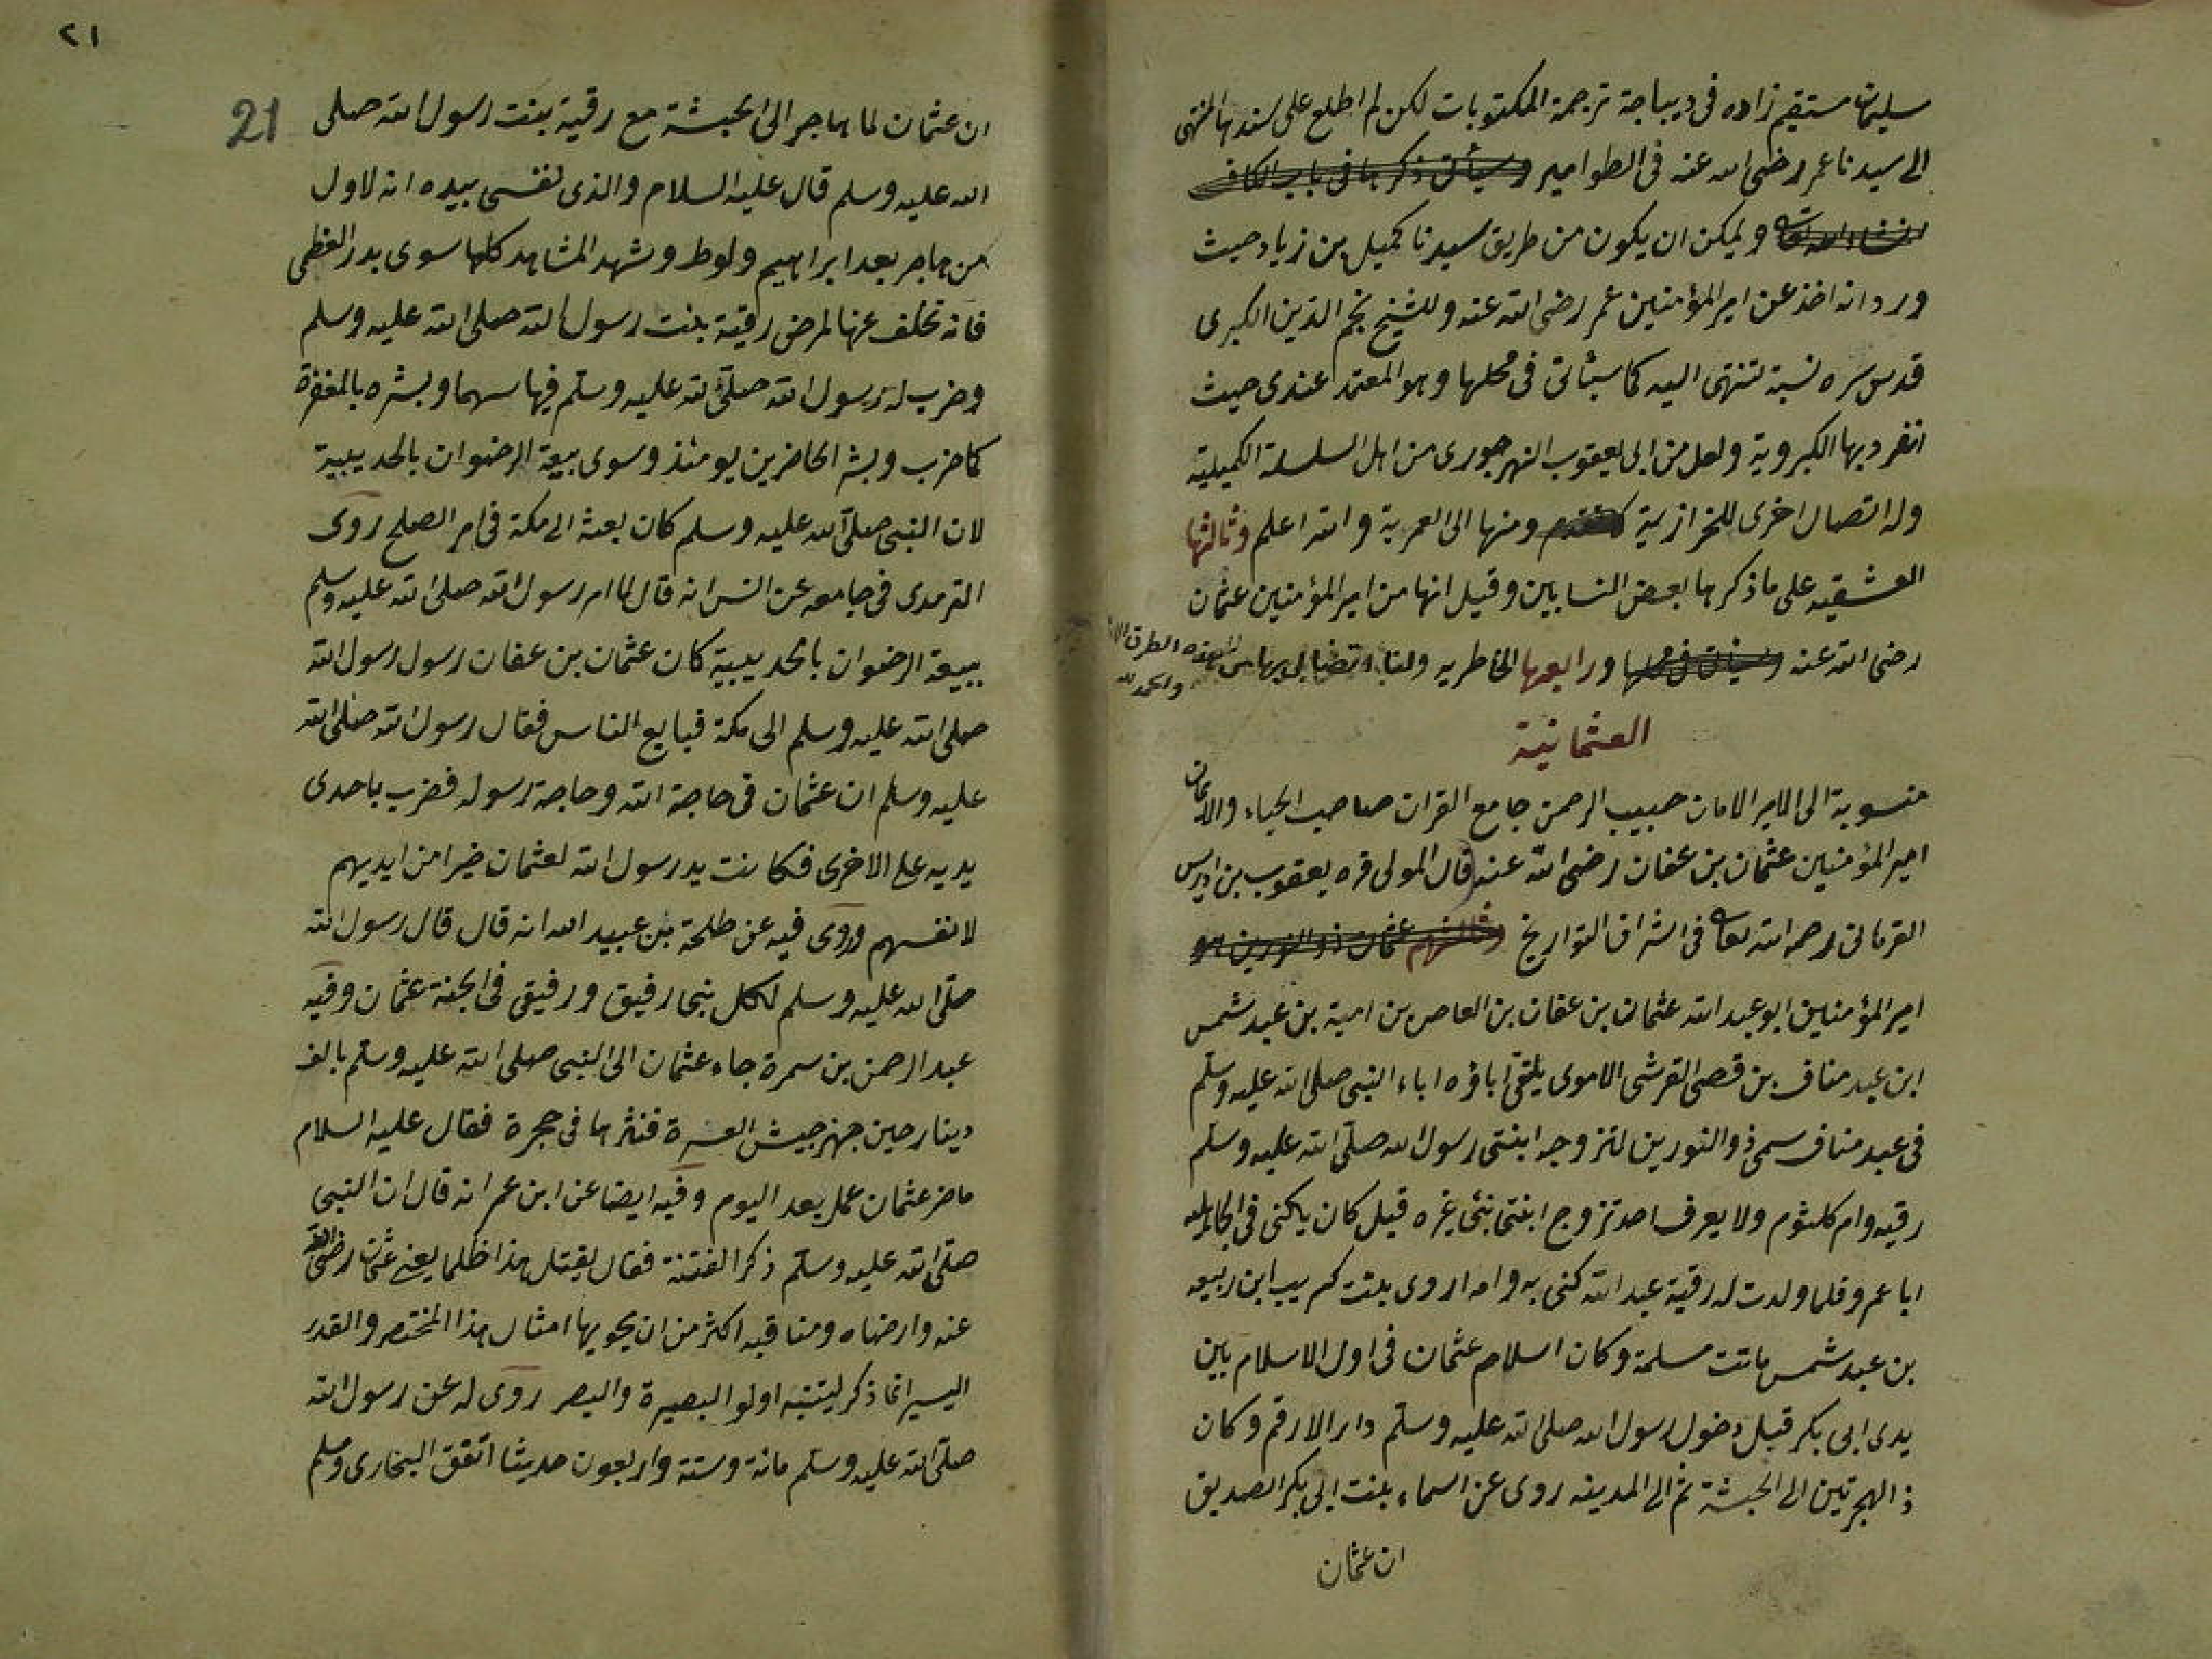 سليمان مستقيم زاده فى ديباجة ترجمة المكتوبات لكن لم اطلع على سندها المنتهى
الى سيدنا عمر رضى الله عنه فى الطوامير وسيأتى ذكرها فى باب الكاف
ان شاء الله تعالى ويمكن ان يكون من طريق سيدنا كميل بن زياد حيث
ورد انه اخذ عن امير المؤمنين عمر رضى الله عنه وللشيخ نجم الدين الكبرى
قدس سره نسبة تنتهى اليه كما سيأتى فى محلها وهو المعتمد عندى حيث
انفرد بها الكبروية ولعل من ابى يعقوب النهرجورى من اهل السلسلة الكميلية
وله اتصال اخرى للخرازية كما تقدم ومنها الى العمرية والله اعلم وثالثها
العشقيه على ما ذكرها بعض النسابين وقيل انها من امير المؤمنين عثمان
رضى الله عنه وسيأتى فى محلها ورابعها الخاطريه ولنا اتصال بها من هذه الطرق
والحمد لله
العثمانية
منسوبة الى الامير الامان حبيب الرحمن جامع القران صاحب الحياء والايمان
امير المؤمنين عثمان بن عفان رضى الله عنه قال المولى قره يعقوب بن ادريس
القرمانى رحمه الله تعالى فى اشراق التواريخ وثالثهم عثمان ذو النورين هو
امير المؤمنين ابو عبد الله عثمان بن عفان بن العاص بن امية بن عبد شمس
ابن عبد مناف بن قصى القرشى الاموى يلتقى اباؤه اباء النبى صلى الله عليه وسلم
فى عبد مناف سمى ذو النورين لتزوجه ابنتى رسول الله صلى الله عليه وسلم
رقيه وام كلثوم ولا يعرف احد تزوج ابنتى نبى غيره قيل كان يكنى فى الجاهليه
ابا عمرو فلما ولدت له رقية عبد الله كنى به وامه اروى بنت كريب ابن ربيعه
بن عبد شمس ماتت مسلمة وكان اسلام عثمان فى اول الاسلام بين
يدى ابى بكر قبل دخول رسول الله صلى الله عليه وسلم دار الارقم وكان
ذا الهجرتين الى الحبشة ثم الى المدينه روى عن اسماء بنت ابى بكر الصديق
ان عثمان
٢١
21
ان عثمان لما هاجر الى الحبشة مع رقية بنت رسول الله صلى
الله عليه وسلم قال عليه السلام والذى نفسى بيده انه لاول
من هاجر بعد ابراهيم ولوط وشهد المشاهد كلها سوى بدر العظمى
فانه تخلف عنها لمرض رقية بنت رسول الله صلى الله عليه وسلم
وضرب له رسول الله صلى الله عليه وسلم فيها سهما وبشره بالمغفرة
كما ضرب وبشر الحاضرين يومئذ وسوى بيعة الرضوان بالحديبية
لان النبى صلى الله عليه وسلم كان بعثه الى مكة فى امر الصلح روى
الترمدى فى جامعه عن انس انه قال لما امر رسول الله صلى الله عليه وسلم
ببيعة الرضوان بالحديبية كان عثمان بن عفان رسول رسول الله
صلى الله عليه وسلم الى مكة فبايع الناس فقال رسول الله صلى الله
عليه وسلم ان عثمان فى حاجة الله وحاجة رسوله فضرب باحدى
يديه على الاخرى فكانت يد رسول الله لعثمان خيرا من ايديهم
لانفسهم وروى فيه عن طلحة بن عبيد الله انه قال قال رسول الله
صلى الله عليه وسلم لكل نبى رفيق ورفيقى فى الجنة عثمان وفيه
عبد الرحمن بن سمرة جاء عثمان الى النبى صلى الله عليه وسلم بالف
دينار حين جهز جيش العسرة فنثرها فى حجرة فقال عليه السلام
ماضر عثمان عمل بعد اليوم وفيه ايضا عن ابن عمر انه قال ان النبى
صلى الله عليه وسلم ذكر الفتنة فقال يقتل هذا ظلما يعنى عثمان رضى الله
عنه وارضاه ومناقبه اكثر من ان يحويها امثال هذا المختصر والقدر
اليسير انما ذكر ليتنبه اولو البصيرة والبصر روى له عن رسول الله
صلى الله عليه وسلم مائة وستة واربعون حديثا اتفق البخارى ومسلم